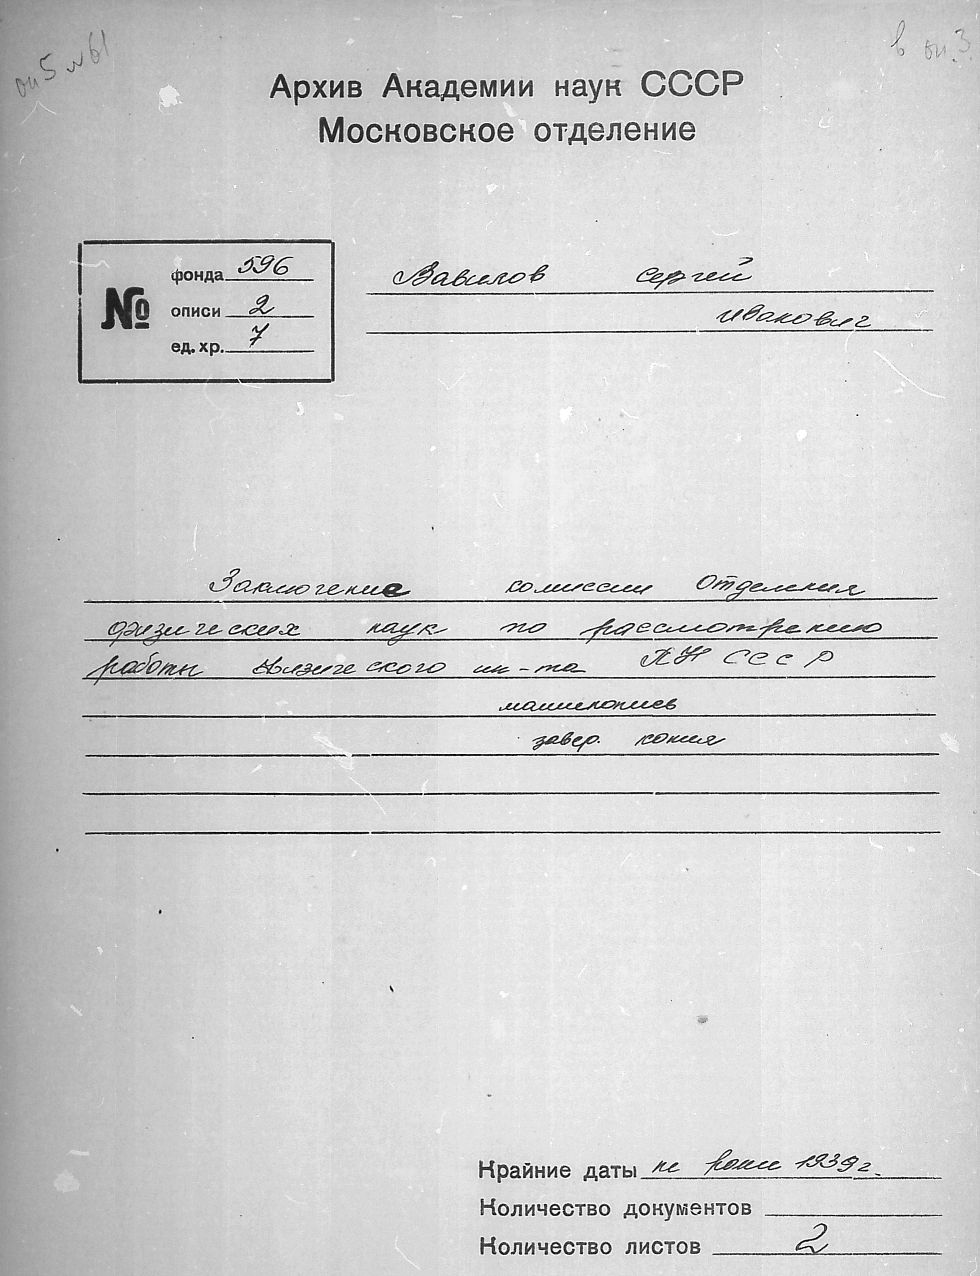 оп5 №61
в оп.3.
Архив Академии наук СССР
Московское отделение
№
фонда 596
описи 2
ед. хр. 7
Вавилов Сергей
Иванович
Заключение комиссии Отделения
физических наук по рассмотрению
работы Физического ин-та АН СССР
машинопись
завер. копия
Крайние даты не 1939 г.
Количество документов
Количество листов 2